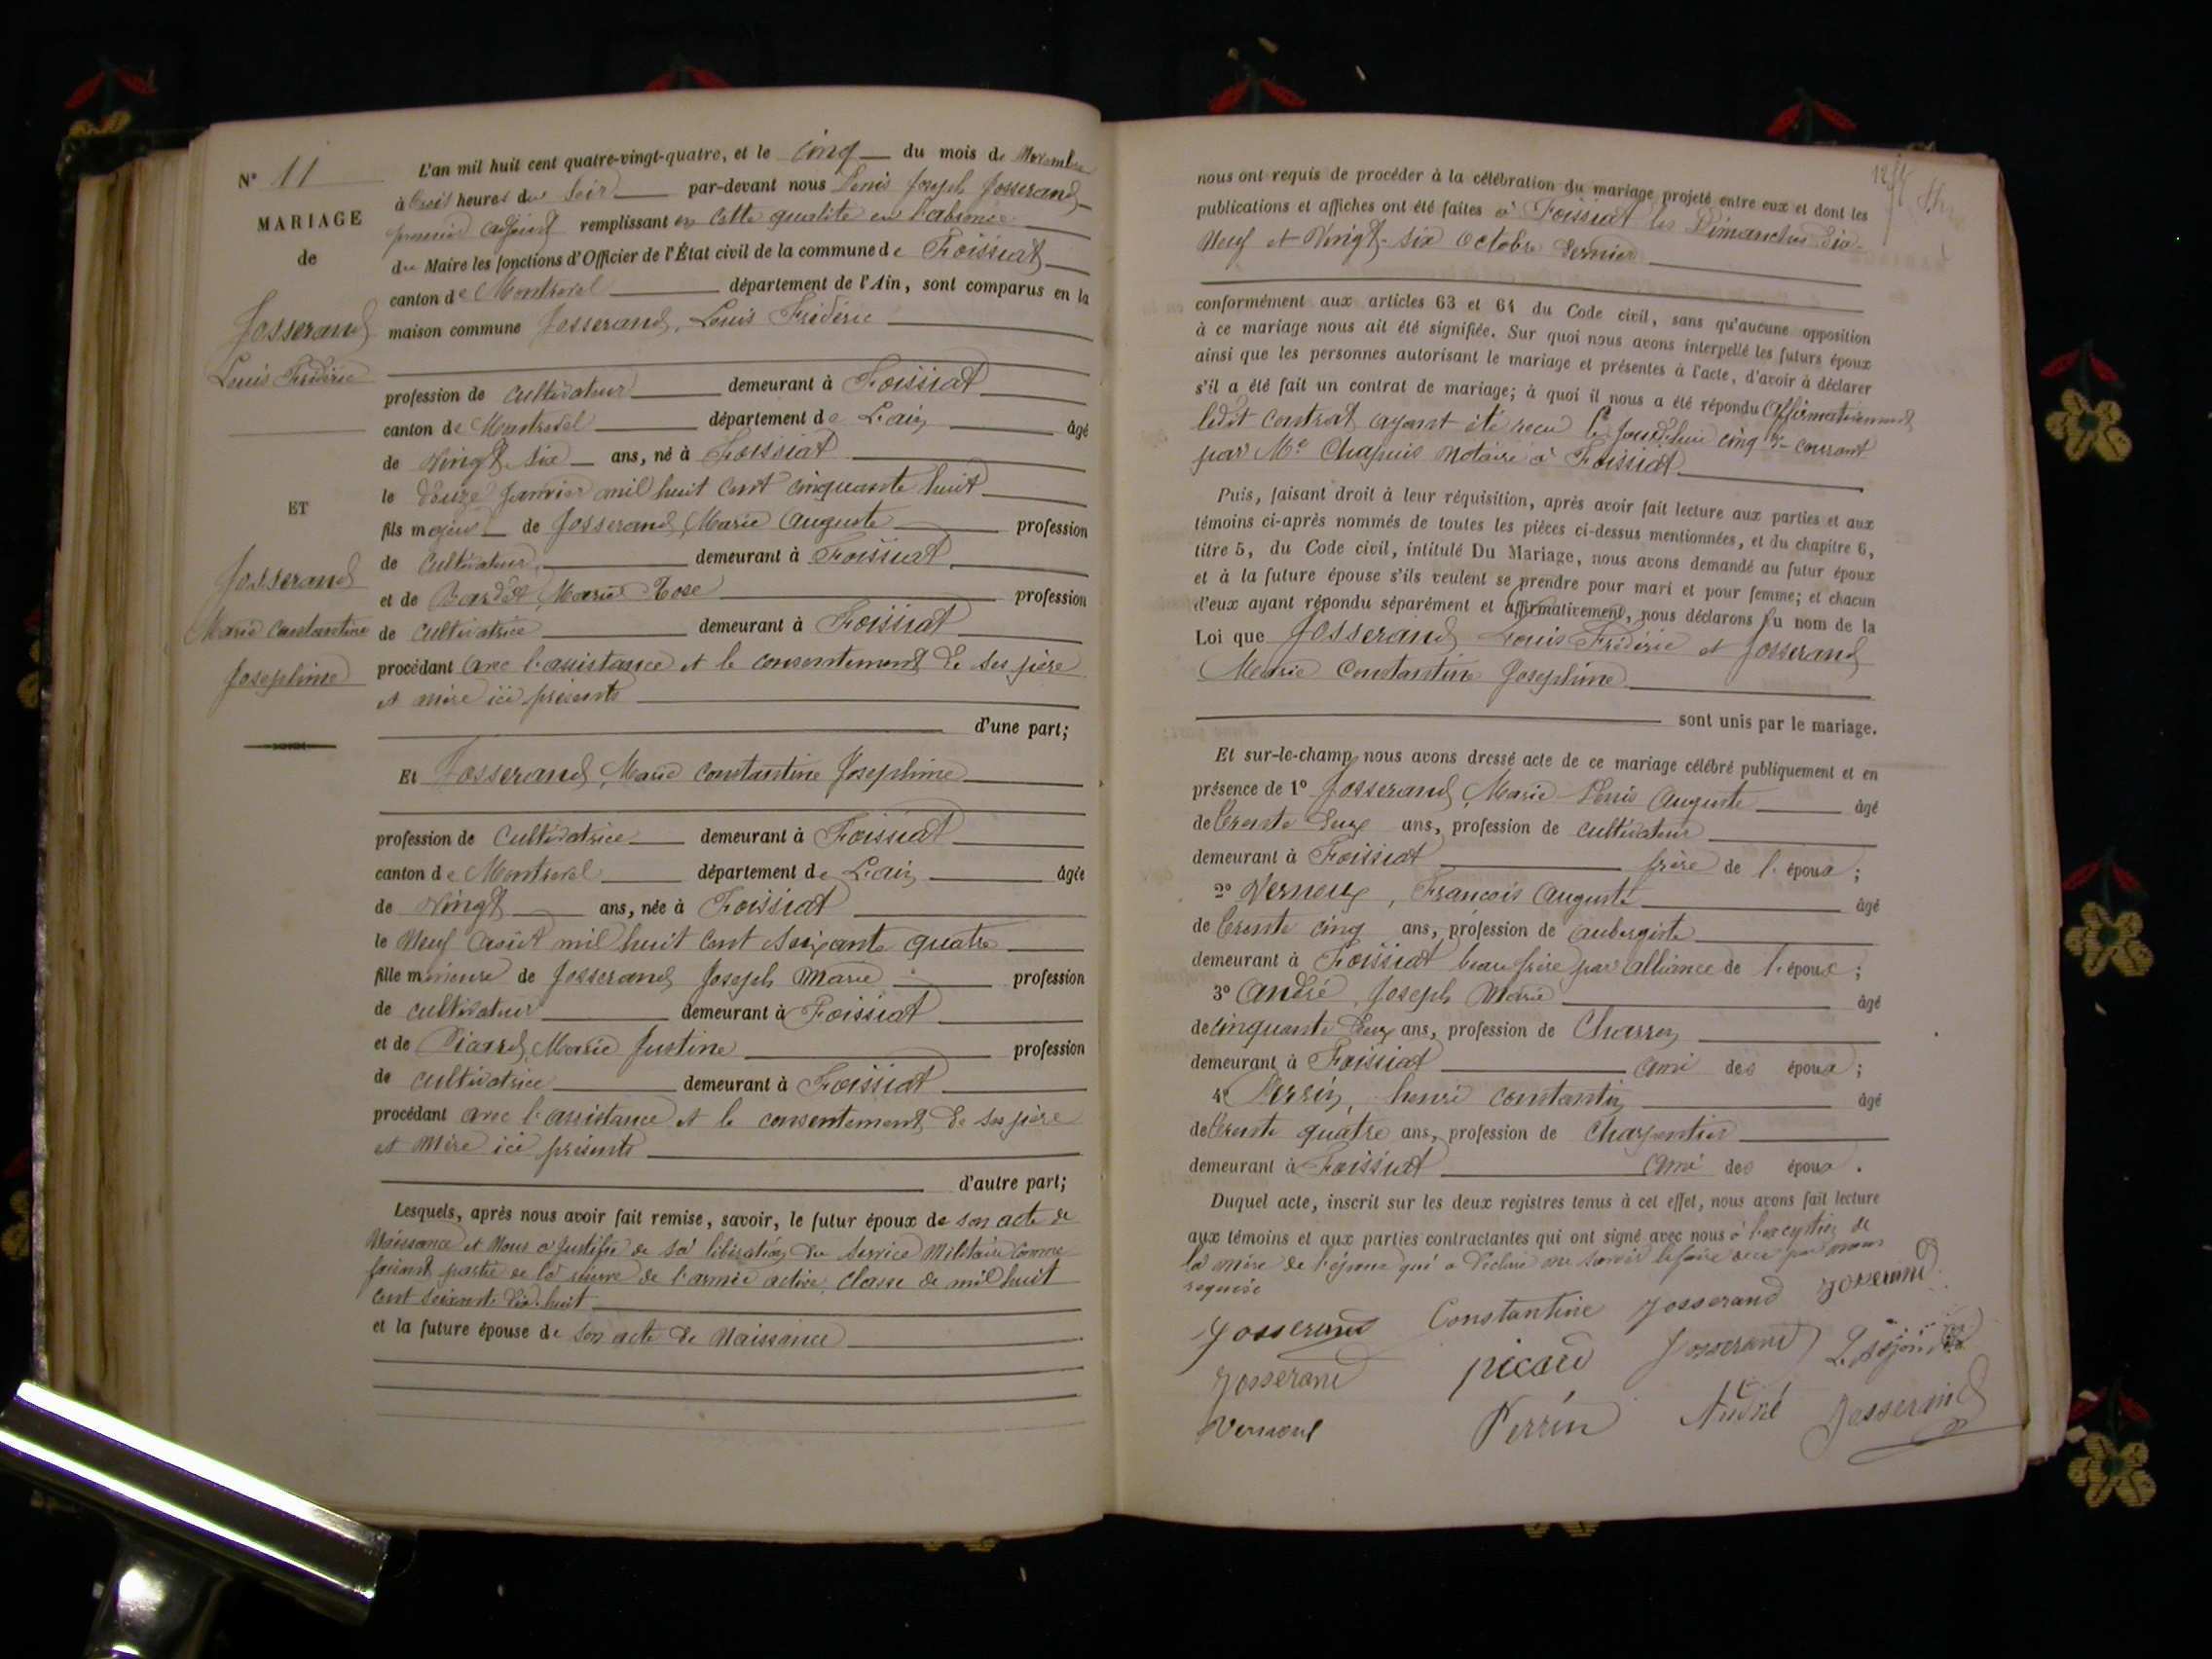 N° 11
MARIAGE
de
Josserand
Louis Frédéric
ET
Josserand
Marie Constantine
Josephine
L'an mil huit cent quatre-vingt-quatre, et le cinq du mois de Novembre
à trois heures du soir par-devant nous Denis Joseph Josserand
premier adjoint remplissant en cette qualité en l'absence
du Maire les fonctions d'Officier de l'État civil de la commune de Foissiat
canton de Montrevel département de l'Ain, sont comparus en la
maison commune Josserand, Louis Frédéric
profession de cultivateur demeurant à Foissiat
canton de Montrevel département de L'ain âgé
de vingt-six ans, né à Foissiat
le douze janvier mil huit cent cinquante huit
fils majeur de Josserand, Marie Auguste profession
de cultivateur demeurant à Foissiat
et de Bardet, Marie Rose profession
de cultivatrice demeurant à Foissiat
procédant avec l'assistance et le consentement de ses père
et mère ici présents
d'une part;
Et Josserand, Marie Constantine Josephine
profession de cultivatrice demeurant à Foissiat
canton de Montrevel département de L'ain âgée
de vingt ans, née à Foissiat
le Neuf août mil huit cent soixante quatre
fille mineure de Josserand Joseph Marie profession
de cultivateur demeurant à Foissiat
et de Marie Justine profession
de cultivatrice demeurant à Foissiat
procédant avec l'assistance et le consentement de ses père
et mère ici présents
d'autre part;
Lesquels, après nous avoir fait remise, savoir, le futur époux de son acte de
Naissance et Nous a justifié de sa libération du service Militaire comme
faisant partie de la réserve de l'armée active, classe de mil huit
cent soixante dix-huit
et la future épouse de son acte de Naissance
nous ont requis de procéder à la célébration du mariage projeté entre eux et dont les
publications et affiches ont été faites à Foissiat les Dimanches dix-
Neuf et Vingt-six octobre dernier
conformément aux articles 63 et 64 du Code civil, sans qu'aucune opposition
à ce mariage nous ait été signifiée. Sur quoi nous avons interpellé les futurs époux
ainsi que les personnes autorisant le mariage et présentes à l'acte, d'avoir à déclarer
s'il a été fait un contrat de mariage; à quoi il nous a été répondu affirmativement
ledit contrat ayant été reçu le jourd'hui cinq du courant
par Me Chapuis notaire à Foissiat
Puis, faisant droit à leur réquisition, après avoir fait lecture aux parties et aux
témoins ci-après nommés de toutes les pièces ci-dessus mentionnées, et du chapitre 6,
titre 5, du Code civil, intitulé Du Mariage, nous avons demandé au futur époux
et à la future épouse s'ils veulent se prendre pour mari et pour femme; et chacun
d'eux ayant répondu séparément et affirmativement, nous déclarons au nom de la
Loi que Josserand Louis Frédéric et Josserand
Marie Constantine Josephine
sont unis par le mariage.
Et sur-le-champ nous avons dressé acte de ce mariage célébré publiquement et en
présence de 1° Josserand, Marie Denis Auguste âgé
de trente deux ans, profession de cultivateur
demeurant à Foissiat frère de l'époux;
2° Verneux, François Auguste âgé
de trente cinq ans, profession de aubergiste
demeurant à Foissiat beau frère par alliance de l'époux;
3° André, Joseph Marie âgé
de cinquante deux ans, profession de Charron
demeurant à Foissiat ami des époux;
4° Perrin, henri constantin âgé
de trente quatre ans, profession de Charpentier
demeurant à Foissiat ami des époux.
Duquel acte, inscrit sur les deux registres tenus à cet effet, nous avons fait lecture
aux témoins et aux parties contractantes qui ont signé avec nous à l'exception de
la mère de l'époux qui a déclaré ne savoir le faire de ce par nous
requise
Josserand Constantine Josserand Josserand
Josserand picard Josserand
Verneux Perrin André Josserand